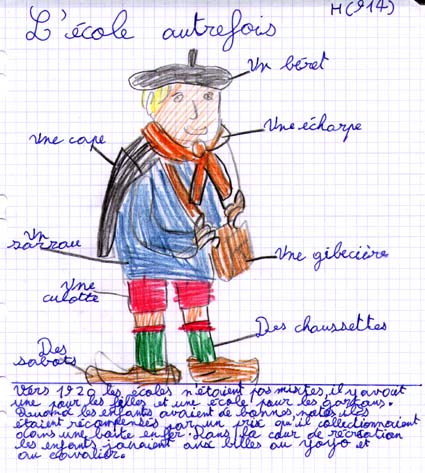 H(214)
L'école autrefois
Un béret
Une écharpe
Une cape
Un
sarrau
Une gibecière
Une
culotte
Des chaussettes
Des
sabots
Vers 1920 les écoles n'étaient pas mixtes, il y avait
une pour les filles et une école pour les garçons.
Quand les enfants avaient de bonnes notes ils
étaient récompensés par un prix qu'il collectionnaient
dans une boite en fer. Dans la cour de récréation
les enfants jouaient aux billes au yoyo et
au cavalier.